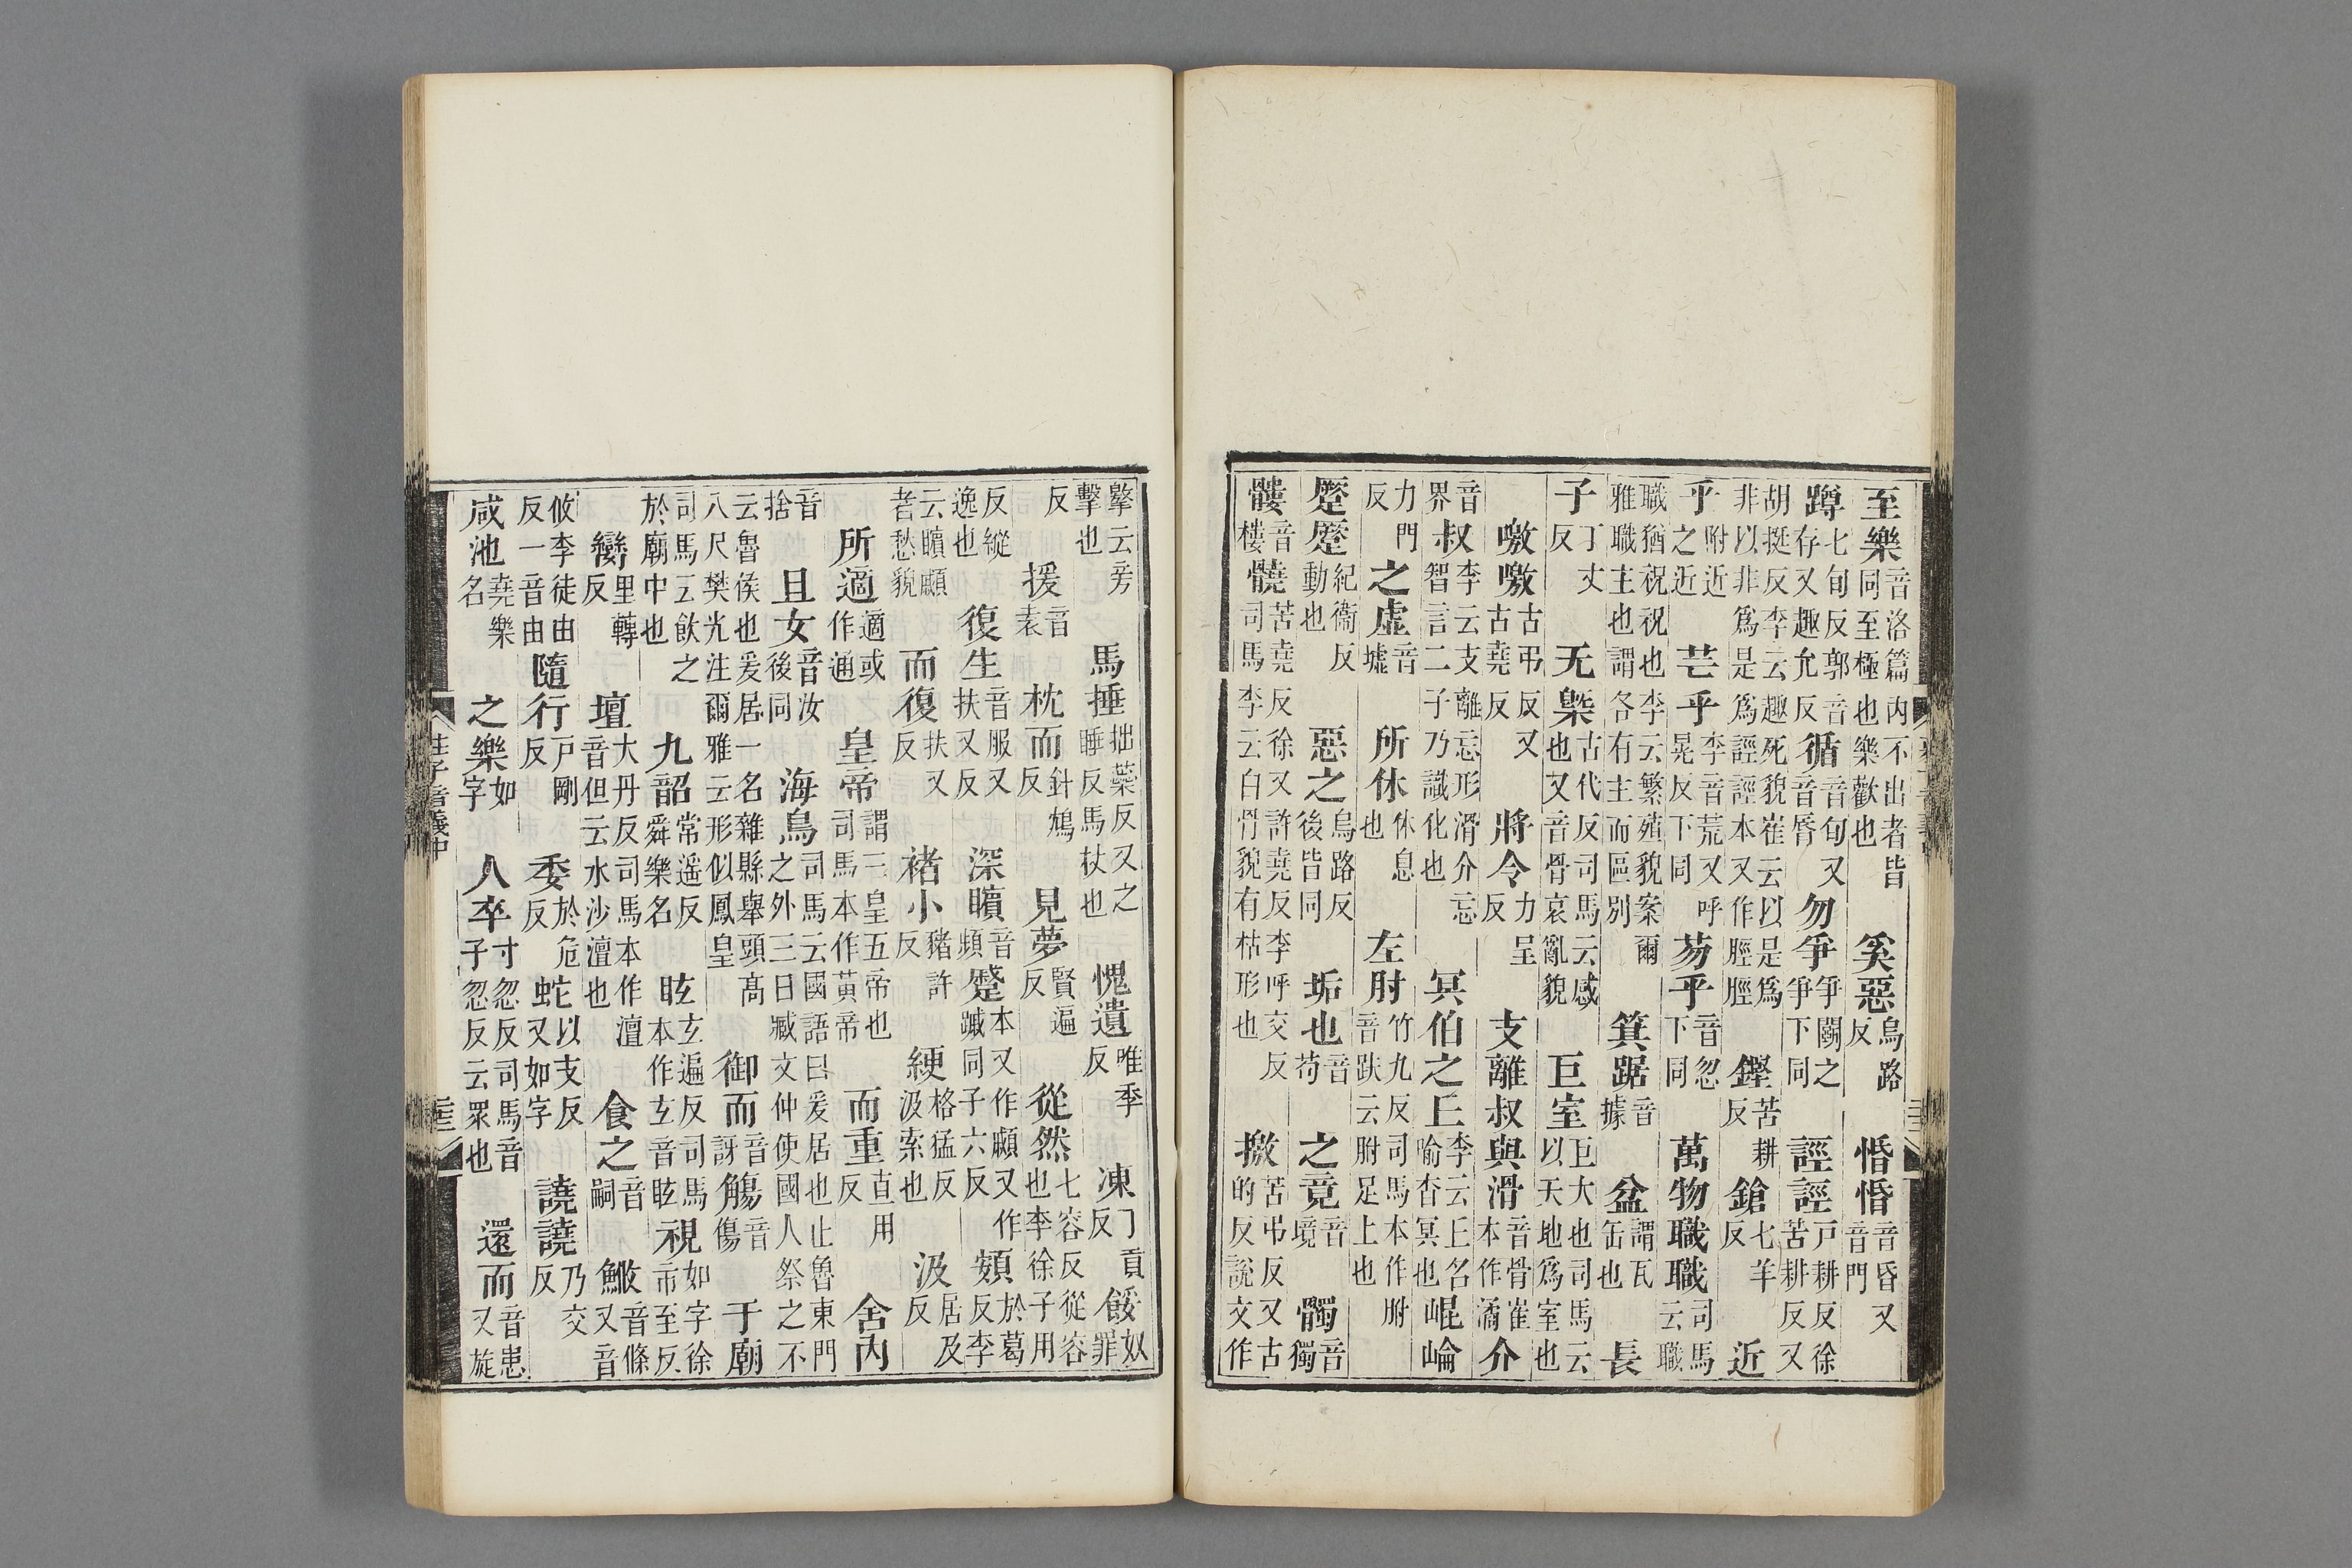 至樂音洛篇内不出者皆同至極也樂歡也奚惡烏路反惛惛音昏又音門
蹲七旬反郭音存又趣允反循音旬又音脣勿爭爭鬬之爭下同誙誙戶耕反徐苦耕反又
胡挺反李云趣死貌崔云以是爲非以非爲是爲誙誙本又作脛脛鏗苦耕反鎗七羊反近
乎附近之近芒乎李音荒又呼晃反下同芴乎音忽下同萬物職職司馬云職
職猶祝祝也李云繁殖貌案爾雅職主也謂各有主而區別箕踞音據盆謂瓦缶也長
子丁丈反无槩古代反司馬云感也又音骨哀亂貌巨室巨大也司馬云以天地爲室也
噭噭古弔反又古堯反將令力呈反支離叔與滑音骨崔本作潏介
音界叔李云支離忘形滑介忘智言二子乃識化也冥伯之丘李云丘名喻杳冥也崐崘
力門反之虛音墟所休休息也左肘竹九反司馬本作胕音趺云胕足上也
蹷蹷紀衞反動也惡之烏路反後皆同垢也音苟之竟音境髑音獨
髏音樓髐苦堯反徐又許堯反李呼交反司馬李云白骨貌有枯形也撽苦弔反又古的反說文作
擊云旁擊也馬捶拙蘂反又之睡反馬杖也愧遺唯季反凍丁貢反餒奴罪
反援音袁枕而針鴆反見夢賢遍反從然七容反從容也李徐子用
反縱逸也復生音服又扶又反深矉音頻蹙本又作顣又作䠞同子六反頞於葛反李
云矉顣者愁貌而復扶又反褚小豬許反綆格猛反汲索也汲居及反
所適適或作通皇帝謂三皇五帝也司馬本作黃帝而重直用反舍内
音捨且女音汝後同海鳥司馬云國語曰爰居也止魯東門之外三日臧文仲使國人祭之不
云魯侯也爰居一名雜縣舉頭高八尺樊光注爾雅云形似鳳皇御而音訝觴音傷于廟
司馬云飲之於廟中也九韶常遥反舜樂名眩玄遍反司馬本作玄音眩視如字徐市至反
臠里轉反壇大丹反司馬本作澶音但云水沙澶也食之音嗣䱔音條又音
攸李徒由反一音由隨行戶剛反委於危反蛇以支反又如字譊譊乃交反
咸池堯樂名之樂如字人卒寸忽反司馬音子忽反云眾也還而音患又旋
莊子音義中